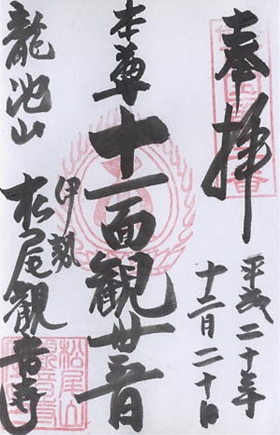 奉拝
平成二十年
十二月二十日
本尊
十一面観世音
龍池山
伊勢
松尾観音寺